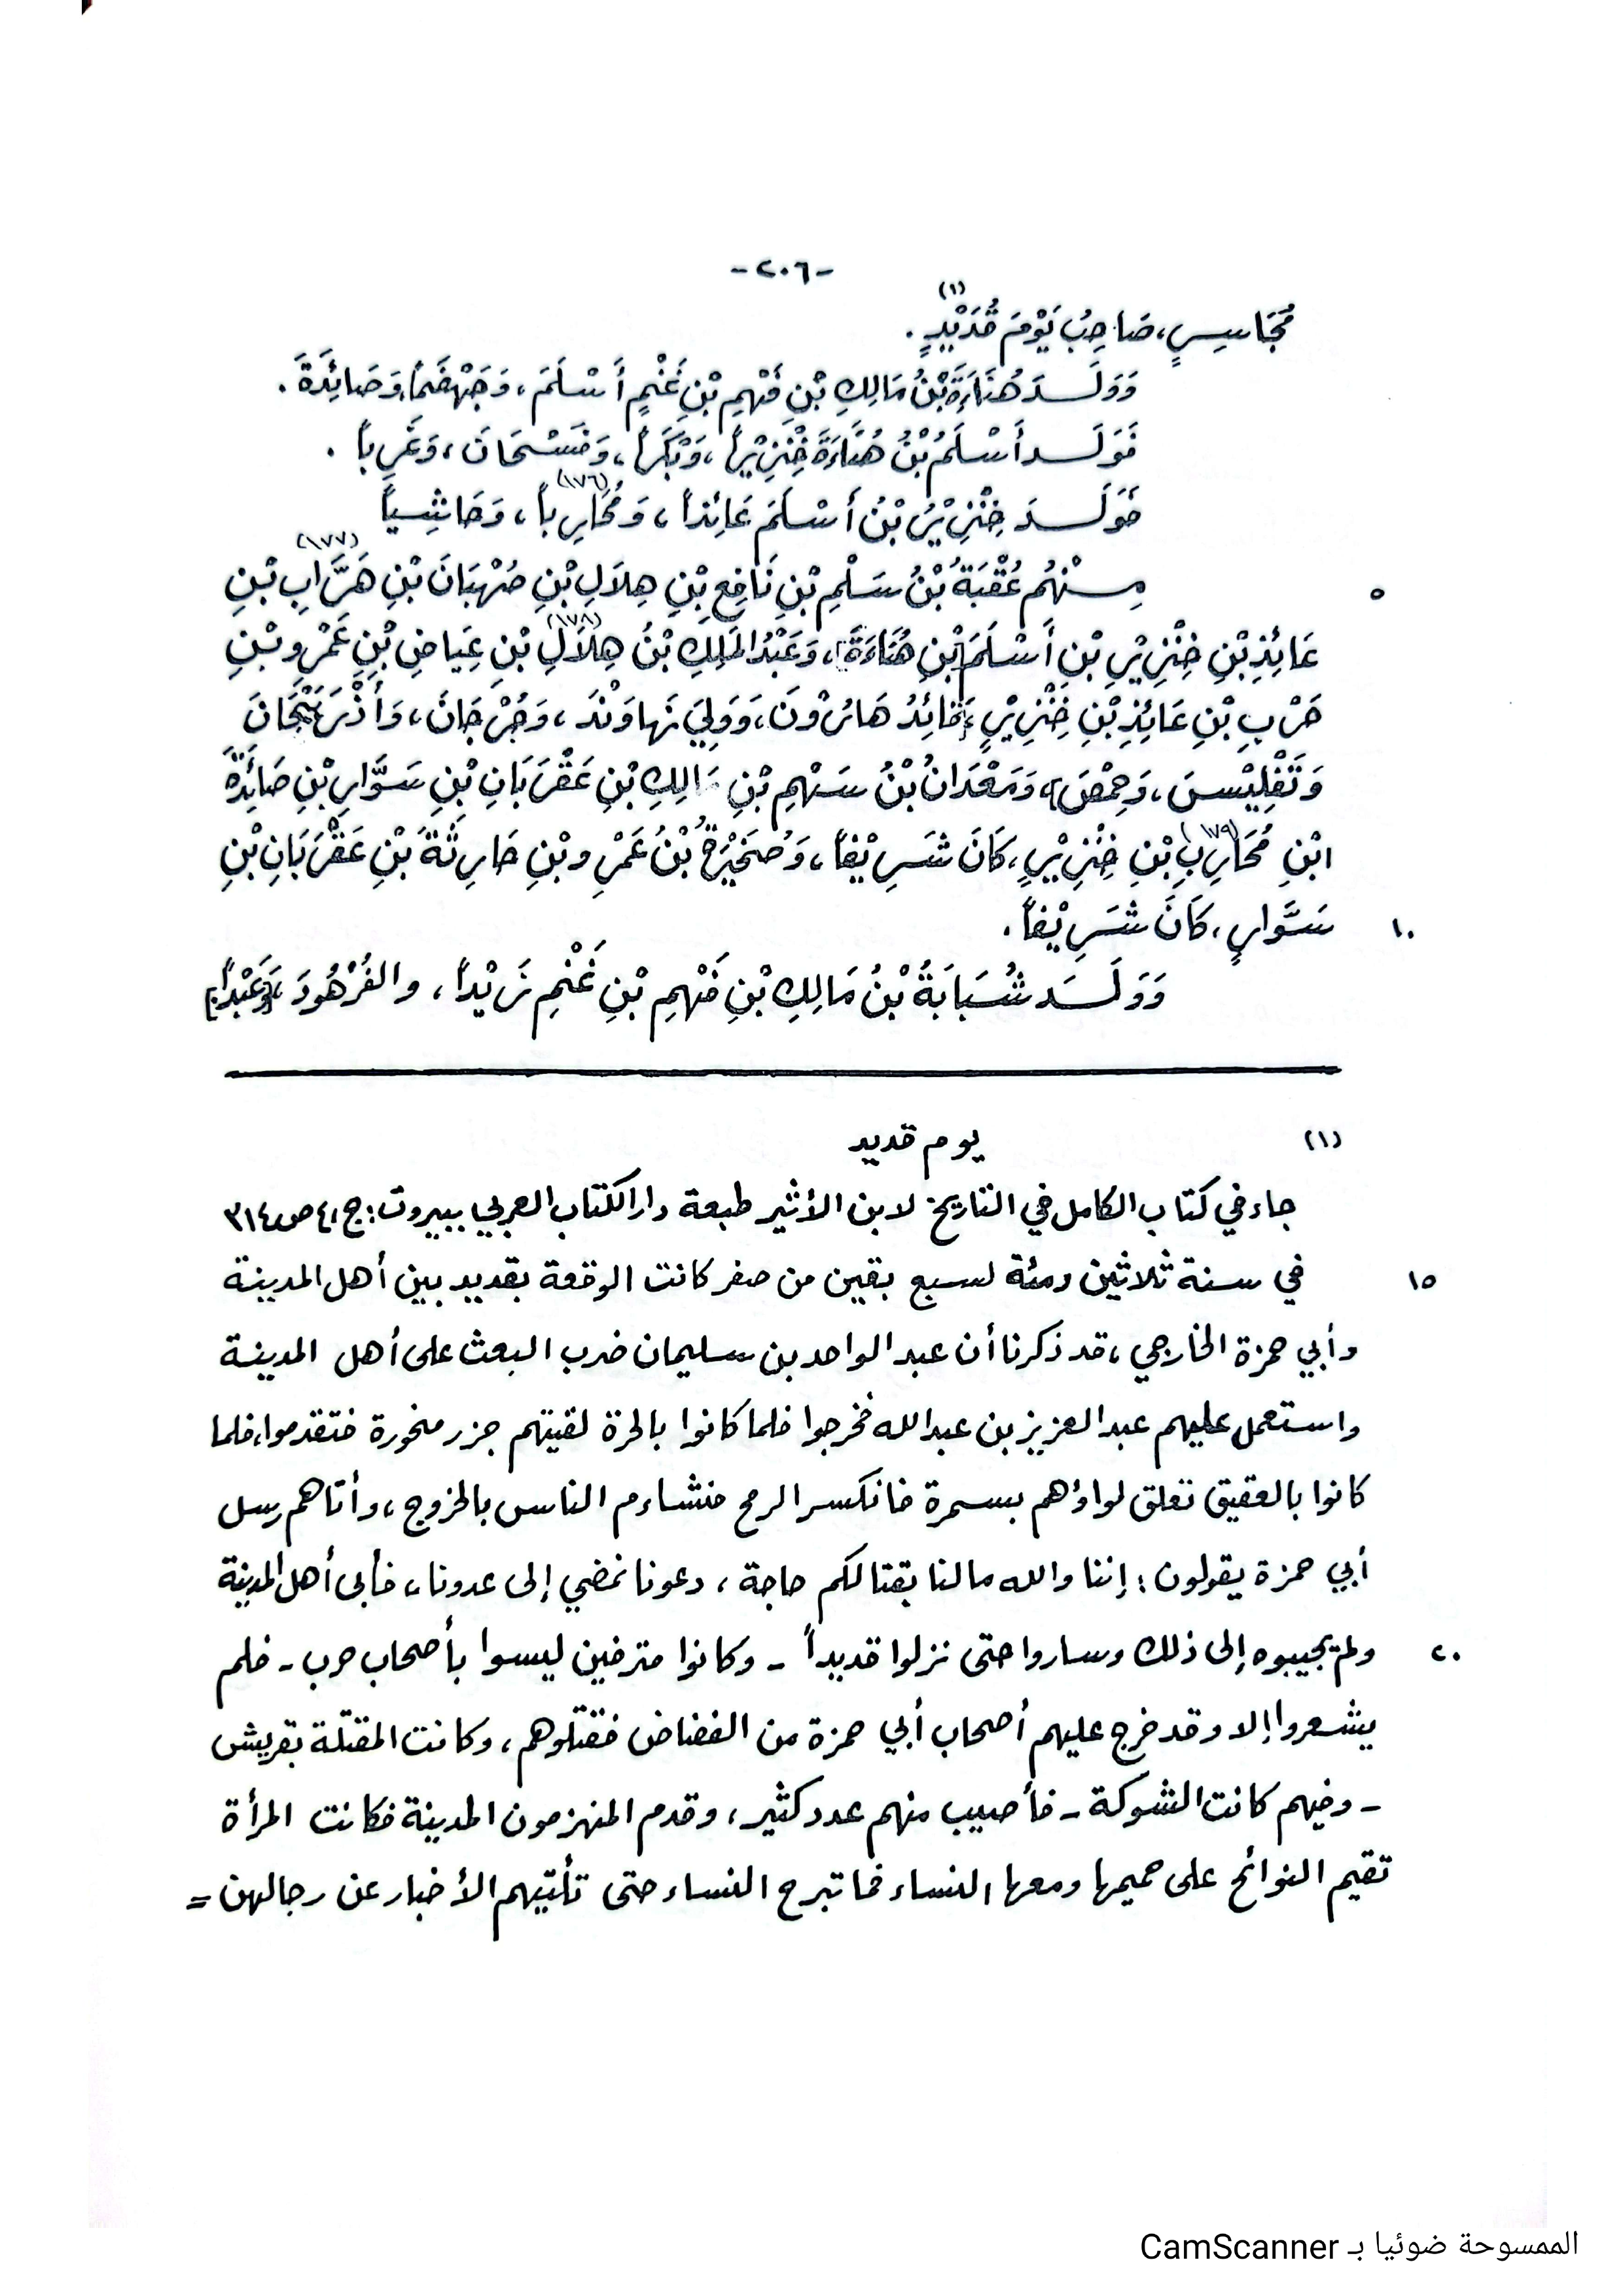 -٢٠٦-
مُجَاسِرٍ، صَاحِبُ يَوْمِ قُدَيْدٍ(١).
وَوَلَدَ هُنَاءَةُ بْنُ مَالِكِ بْنِ فَهْمِ بْنِ غَنْمٍ أَسْلَمَ، وَجَهْضَماً، وَصَائِدَةَ.
فَوَلَدَ أَسْلَمُ بْنُ هُنَاءَةَ خِنْزِيْراً، وَبَكْراً، وَضَسْحَانَ، وَغَرِباً.
فَوَلَدَ خِنْزِيْرُ بْنُ أَسْلَمَ عَائِذاً، وَمُحَارِباً(١٧٦)، وَحَاشِياً
٥ مِنْهُم عُقْبَةُ بْنُ سَلْمِ بْنِ نَافِعِ بْنِ هِلَالِ بْنِ صُهْبَانَ بْنِ هَرَّابِ(١٧٧) بْنِ
عَائِذِ بْنِ خِنْزِيْرِ بْنِ أَسْلَمَ [بْنِ هُنَاءَةَ]، وَعَبْدُ المَلِكِ بْنُ هِلَالِ(١٧٨) بْنِ عِيَاضِ بْنِ عَمْرِو بْنِ
حَرْبِ بْنِ عَائِذِ بْنِ خِنْزِيْرٍ، قَائِدُ هَارُوْنَ، وَوَلِيَ نَهاوَنْدَ، وَجُرْجَانَ، وَأَذْرَبَيْجَانَ
وَتَفْلِيْسَ، وَحِمْصَ، وَمَعْدَانُ بْنُ سَهْمِ بْنِ مَالِكِ بْنِ عَقْرَبَانِ بْنِ سَوَّارِ بْنِ صَائِدَةَ
ابْنِ مُحَارِبِ(١٧٩) بْنِ خِنْزِيْرٍ، كَانَ شَرِيْفاً، وَصُخَيْرَةُ بْنُ عَمْرِو بْنِ حَارِثَةَ بْنِ عَقْرَبَانِ بْنِ
١٠ سَوَّارٍ، كَانَ شَرِيْفاً.
وَوَلَدَ شُبَابَةُ بْنُ مَالِكِ بْنِ فَهْمِ بْنِ غَنْمٍ زَيْداً، والفُرْهُودَ، [وَعَبْداً]
(١) يوم قديد
جاء في كتاب الكامل في التاريخ لابن الأثير طبعة دار الكتاب العربي ببيروت: ج،٤ ص،٣١٤
١٥ في سنة ثلاثين ومئة لسبع بقين من صفر كانت الوقعة بقديد بين أهل المدينة
وأبي حمزة الخارجي، قد ذكرنا أن عبد الواحد بن سليمان ضرب البعث على أهل المدينة
واستعمل عليهم عبد العزيز بن عبد الله فخرجوا فلما كانوا بالحرة لقيتهم جزر منحورة فتقدموا، فلما
كانوا بالعقيق تعلق لواؤهم بسمرة فانكسر الرمح فتشاءم الناس بالخروج، وأتاهم رسل
أبي حمزة يقولون: إننا والله مالنا بقتالكم حاجة، دعونا نمضي إلى عدونا، فأبى أهل المدينة
٢٠ ولم يجيبوه إلى ذلك وساروا حتى نزلوا قديداً - وكانوا مترفين ليسوا بأصحاب حرب - فلم
يشعروا إلا وقد خرج عليهم أصحاب أبي حمزة من الفضاض فقتلوهم، وكانت المقتلة بقريش
- وفيهم كانت الشوكة - فأصيب منهم عدد كثير، وقدم المنهزمون المدينة فكانت المرأة
تقيم النوائح على حميمها ومعها النساء فما تبرح النساء حتى تأتيهم الأخبار عن رجالهن =
الممسوحة ضوئيا بـ CamScanner